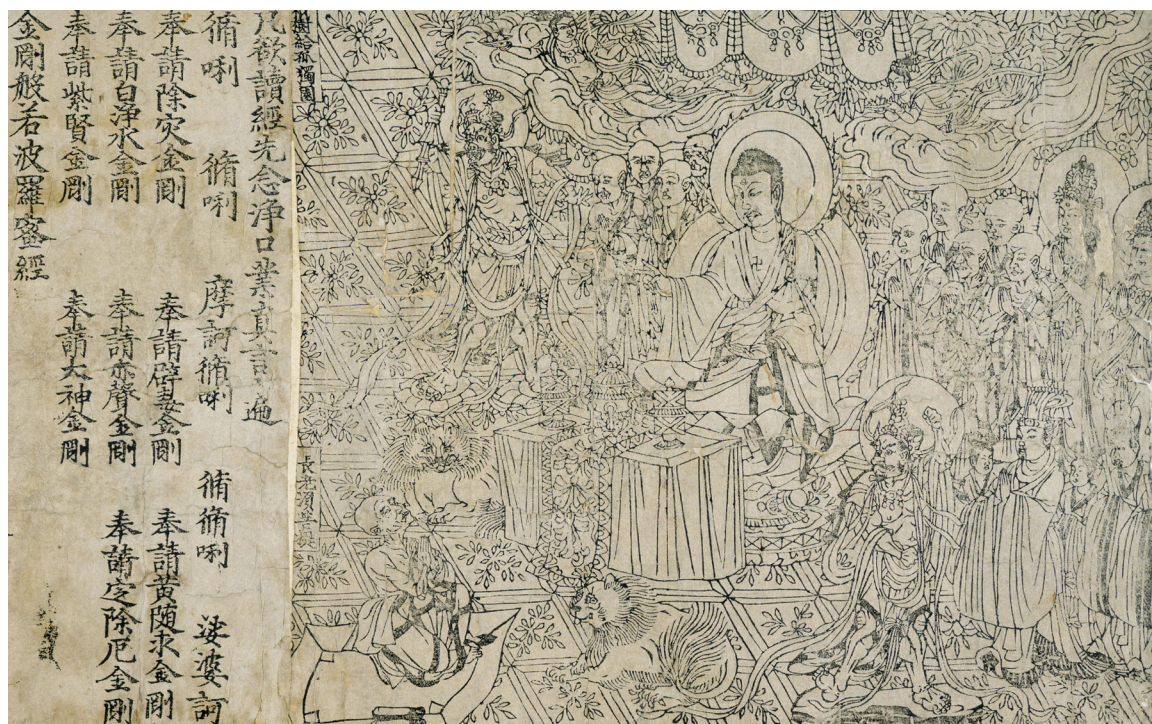 樹給孤獨園
長老須菩提
凡欲讀經先念淨口業真言一遍
脩唎 脩唎 摩訶脩唎 脩脩唎 娑婆訶
奉請除灾金剛 奉請辟毒金剛 奉請黄随求金剛
奉請白淨水金剛 奉請赤聲金剛 奉請定除厄金剛
奉請紫賢金剛 奉請大神金剛
金剛般若波羅蜜經